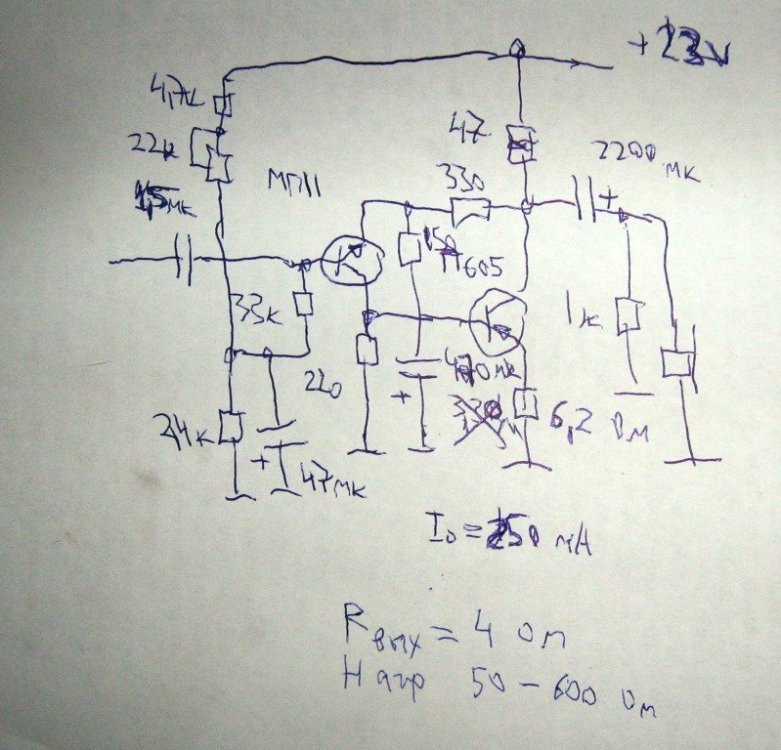 +23V
4,7К
22К
47
2200 мк
МП11
330
1,5мк
150
П605
33К
1К
220
470мк
24К
6,2 Ом
47мк
I₀ = 250 мА
Rвых = 4 Ом
Нагр 50 – 600 Ом